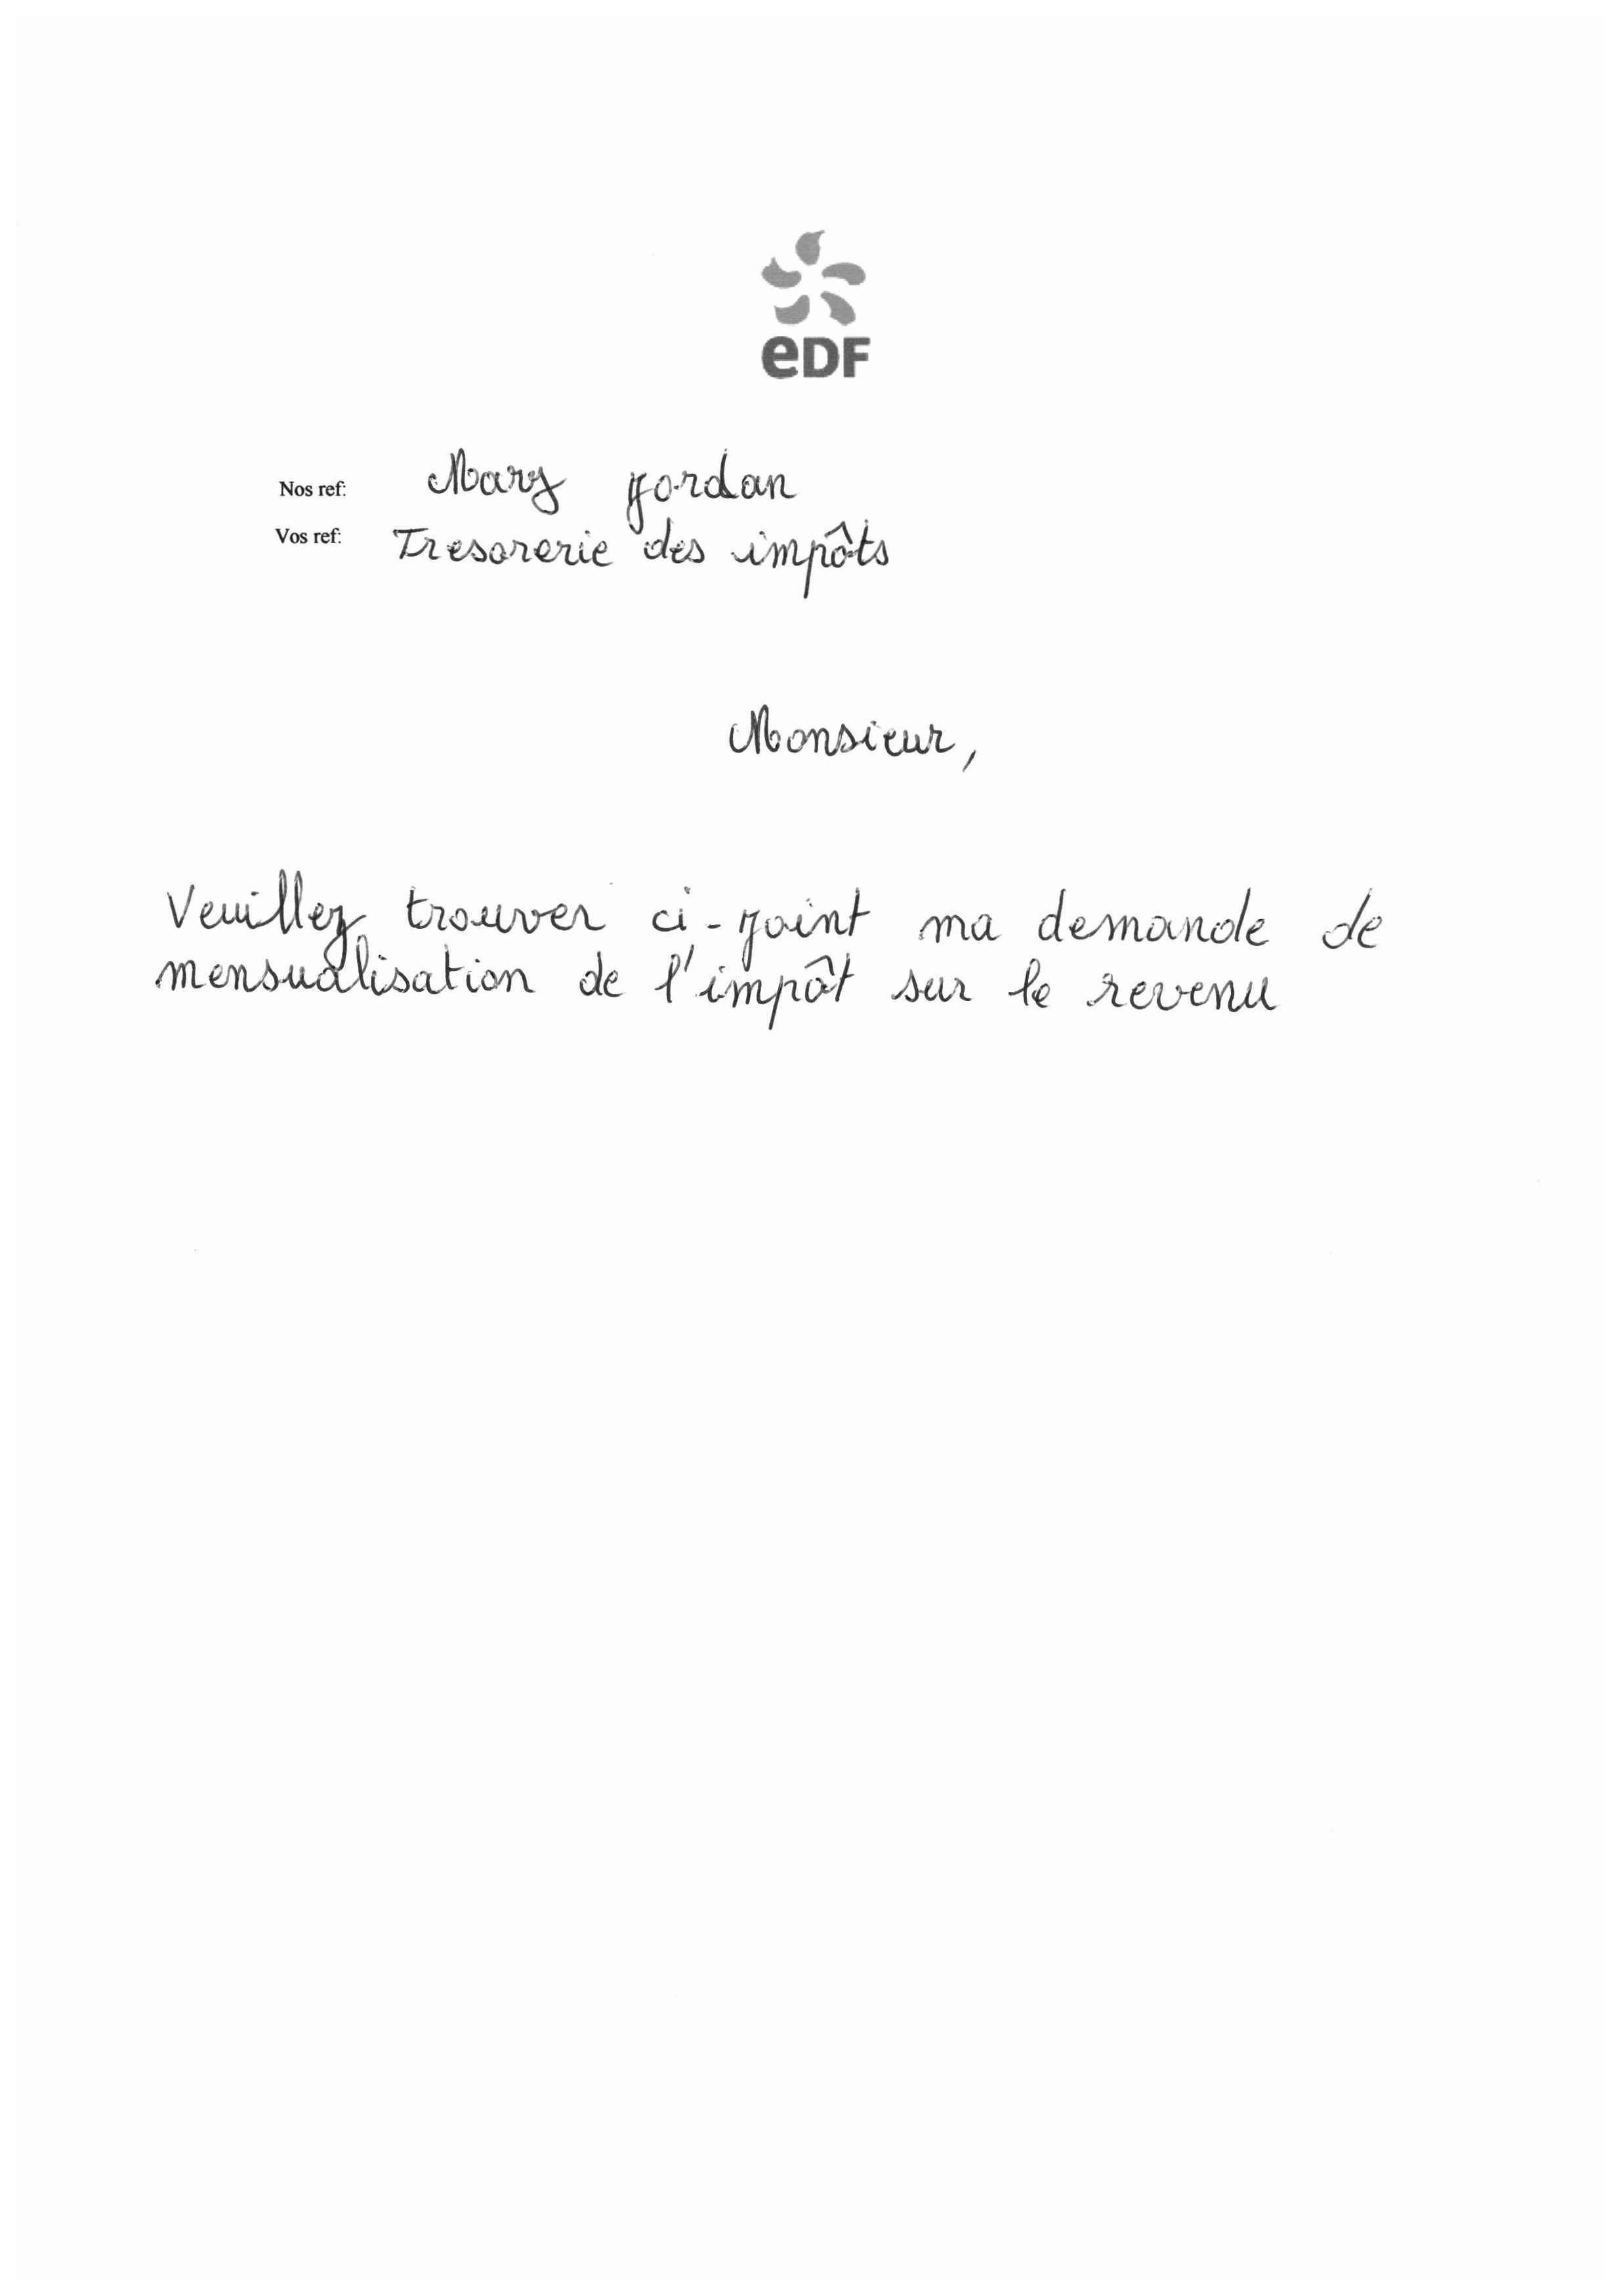 eDF
Nos ref: Mary Jordan
Vos ref: Tresorerie des impôts
Monsieur,
Veuillez trouver ci-joint ma demande de
mensualisation de l'impôt sur le revenu